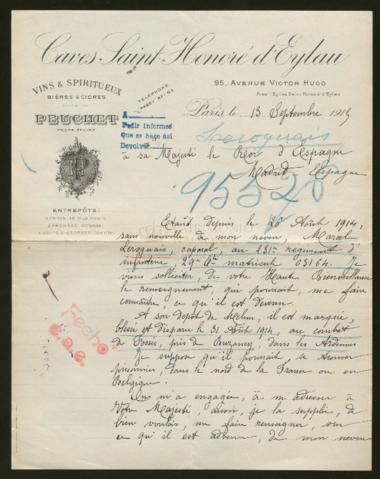 Caves Saint-Honoré d'Eylau
VINS & SPIRITUEUX
BIÈRES & CIDRES
PEUCHET
TÉLÉPHONE
95, AVENUE VICTOR HUGO
Près l'Eglise Saint-Honoré d'Eylau
Paris, le 13 Septembre 1915
A
Pedir informes
Que se haga así
Devolver
Lerognais
à sa Majesté le Roi d'Espagne
Madrid Espagne
95520
P
ENTREPÔTS:
Etant, depuis le 20 Août 1914,
sans nouvelle de mon neveu, Marcel
Lerognais, caporal, au 231e régiment d'
infanterie 29e Cie matricule 03164. Je
viens solliciter de votre Haute Bienveillance
le renseignement, qui pourrait, me faire
connaître ce qu'il est devenu.
A son Dépôt de Melun, il est marqué,
blessé et disparu le 31 Août 1914, au combat
de près de Buzancy, dans les Ardennes
Je suppose qu'il pourrait, se trouver
prisonnier dans le nord de la France ou en
Belgique.
On m'a engagé, à m'adresser à
Votre Majesté aussi, je la supplie, de
bien vouloir, me faire renseigner, sur
ce qu'il est advenu, de mon neveu
Fecho